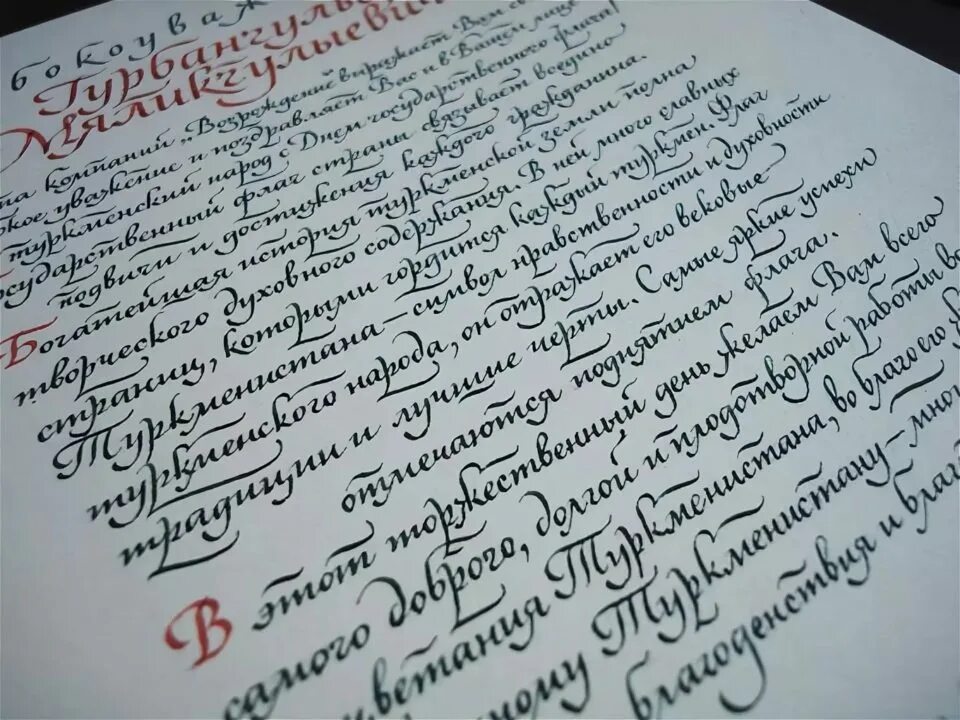 бокоуваж
Гурбангулы
Мяликгулыевич
па компаний „Возрождение" выражает Вам св
окое уважение и поздравляет Вас и в Вашем лице
туркменский народ с Днем государственного флага!
осударственный флаг страны связывает воедино
подвиги и достижения каждого гражданина.
Богатейшая история туркменской земли полна
творческого духовного содержания. В ней много славных
страниц, которыми гордится каждый туркмен. Флаг
Туркменистана – символ нравственности и духовности
туркменского народа, он отражает его вековые
традиции и лучшие черты. Самые яркие успехи
отмечаются поднятием флага.
В этот торжественный день желаем Вам всего
самого доброго, долгой и плодотворной работы во
цветания Туркменистана, во благо его
ному Туркменистану – мног
благоденствия и благ